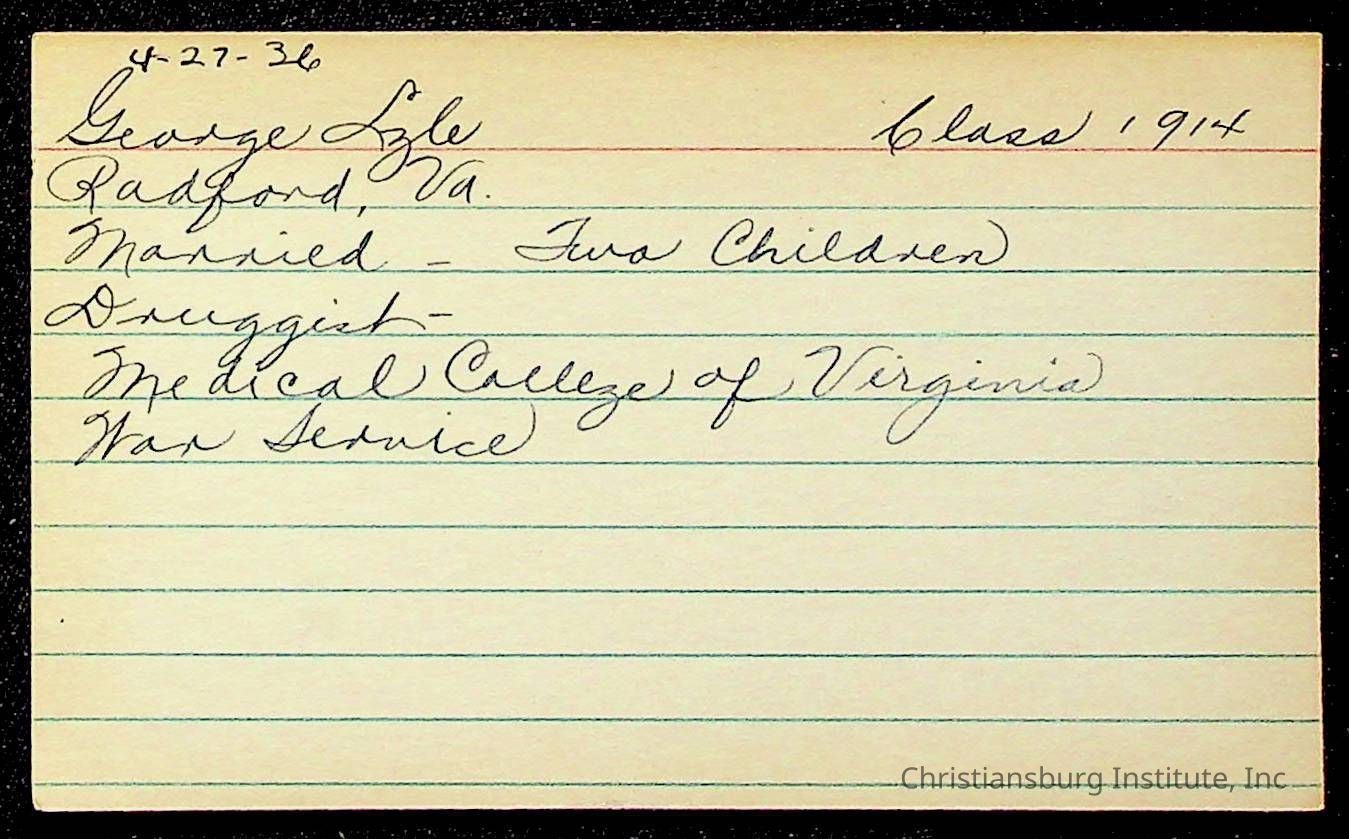 4-27-36
George Lyle Class 1914
Radford, Va.
Married - Two Children
Druggist -
Medical College of Virginia
War Service
Christiansburg Institute, Inc